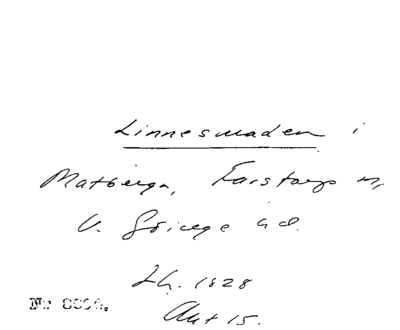 Linnesmaden i
Matberga, Farstorps sn,
V. Göinge hd.
Lh. 1828
Akt 15.
Nr